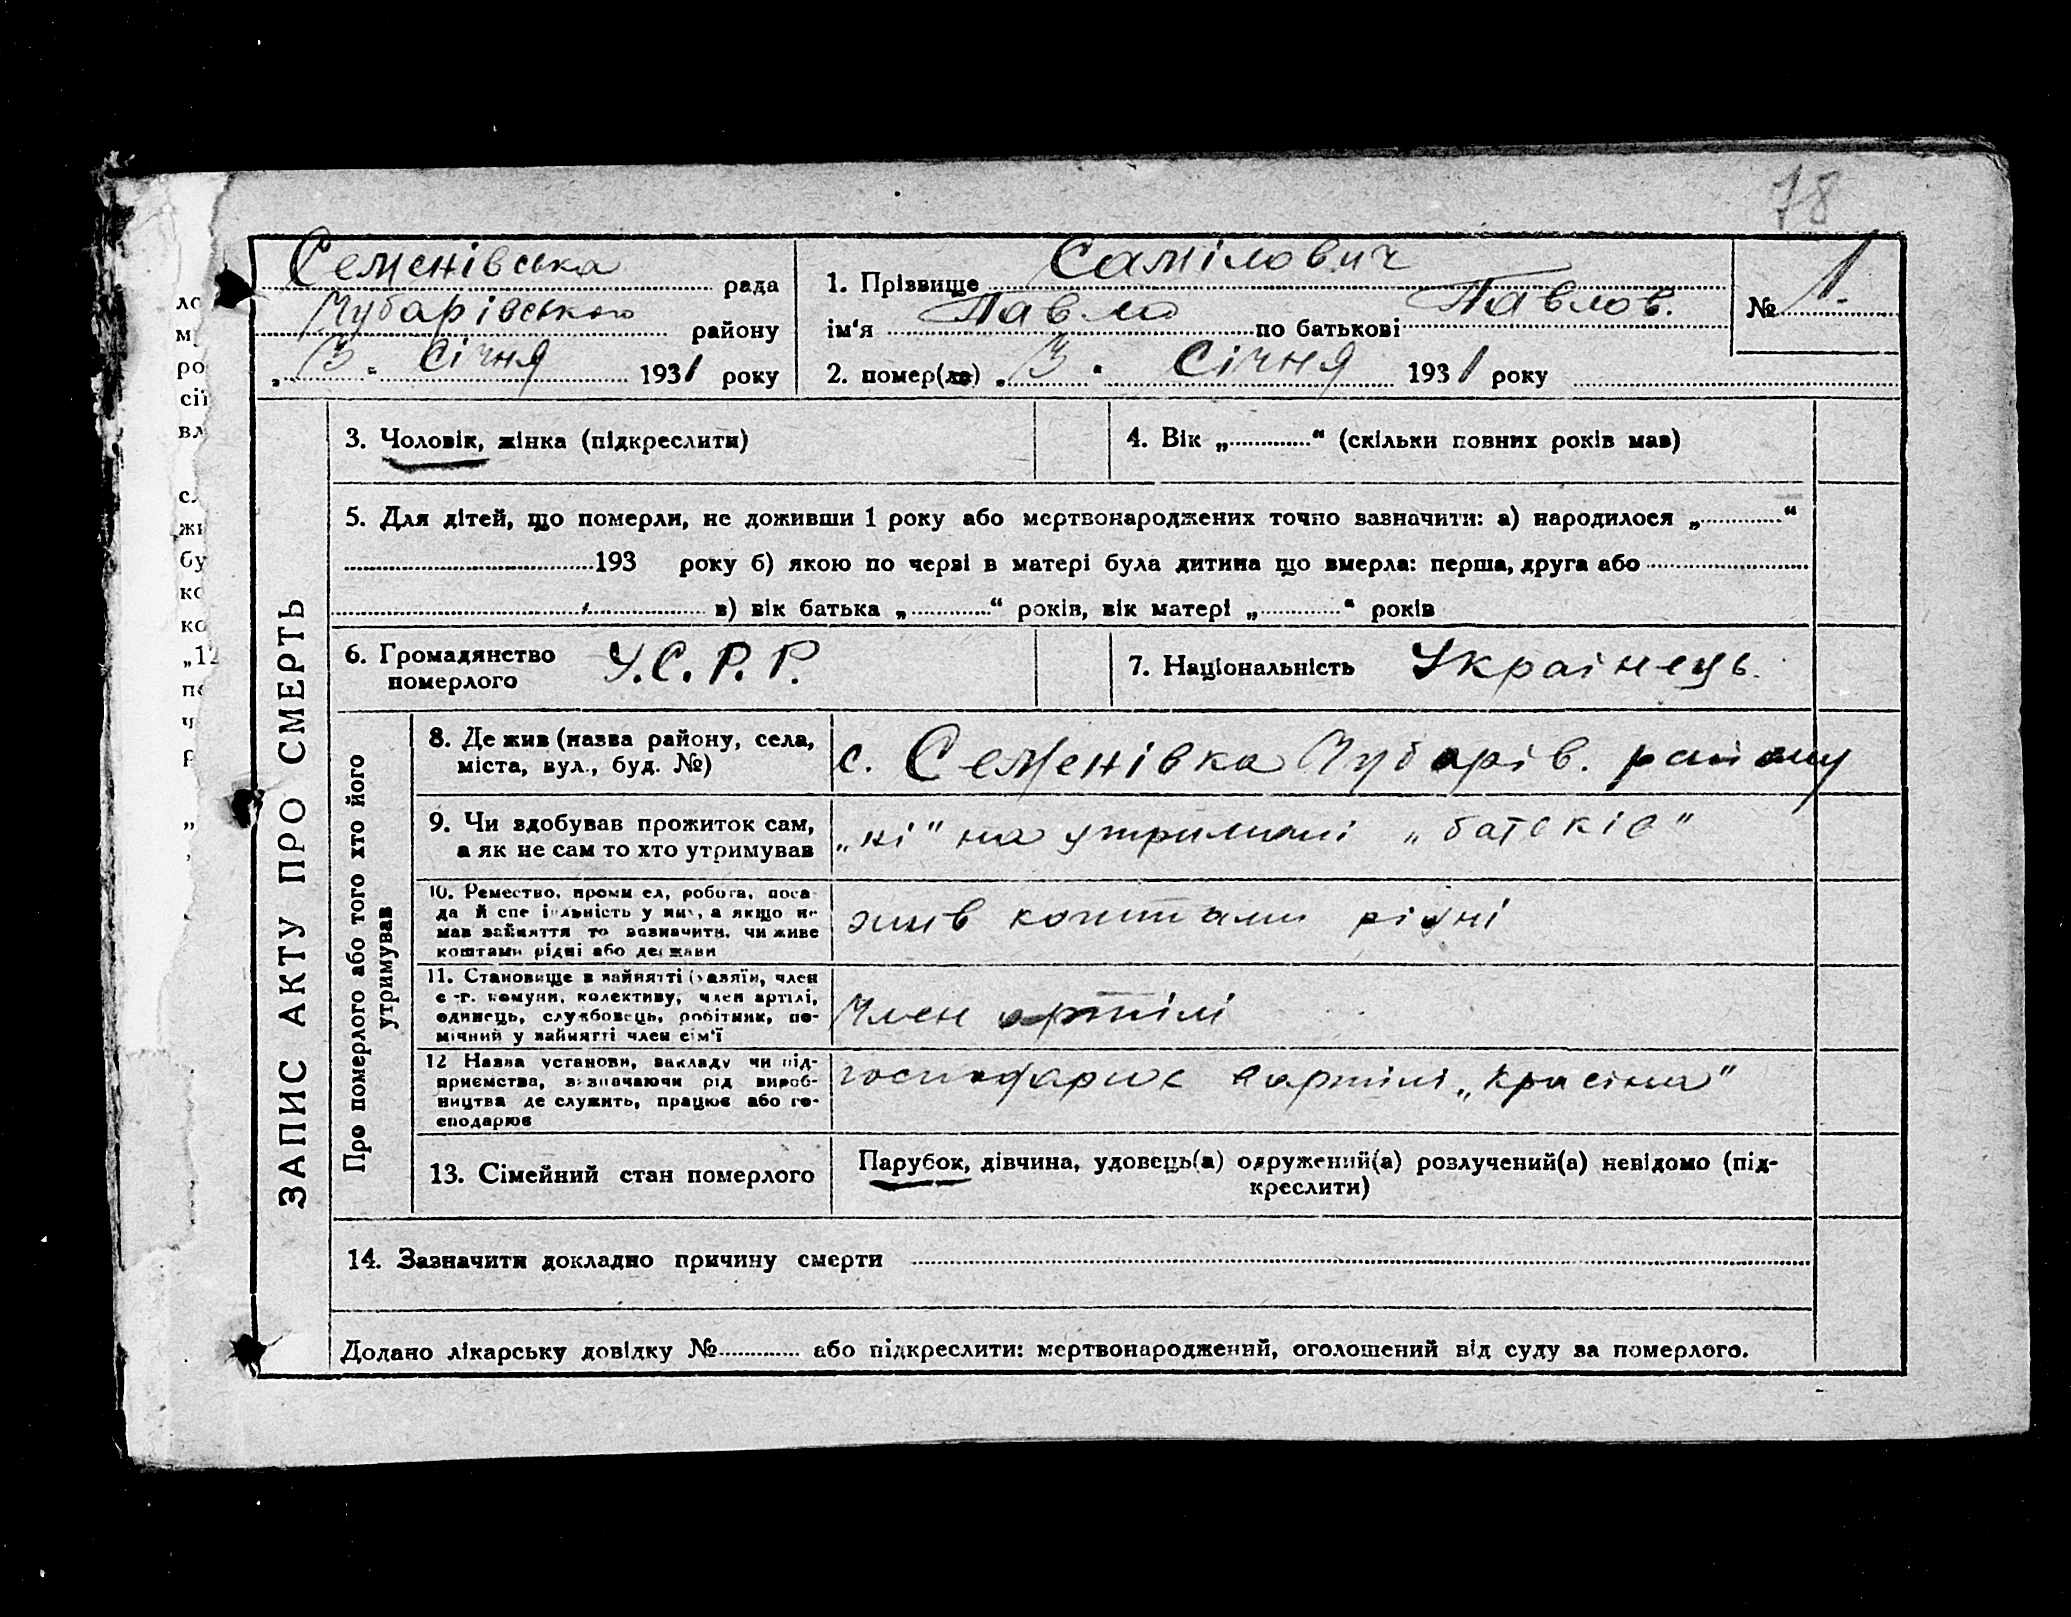 78
Семенівська рада
Чубарівського району
„ 3 “ Січня 1931 року
1. Прізвище Самілович
ім'я Павло по батькові Павлов.
2. помер(ла) „ 3 “ Січня 1931 року
№ 1.
ЗАПИС АКТУ ПРО СМЕРТЬ
3. Чоловік, жінка (підкреслити)
4. Вік „ “ (скільки повних років мав)
5. Для дітей, що померли, не доживши 1 року або мертвонароджених точно зазначити: а) народилося „ “
193 року б) якою по черві в матері була дитина що вмерла: перша, друга або
в) вік батька „ “ років, вік матері „ “ років
6. Громадянство
померлого
У.С.Р.Р.
7. Національність Украінець.
Про померлого або того хто його
утримував
8. Де жив (назва району, села,
міста, вул., буд. №)
с. Семенівка Чубарів. району
9. Чи здобував прожиток сам,
а як не сам то хто утримував
„ні“ на утримані „батьків“
10. Ремество, промисел, робота, поса-
да й спеціяльність у них, а якщо не
мав зайняття то зазначити, чи живе
коштами рідні або держави
жив коштами рідні
11. Становище в зайнятті (хазяїн, член
с.-г. комуни, колективу, член артілі,
одинець, службовець, робітник, по-
мічний у зайнятті член сім'ї
Член артілі
12 Назва установи, закладу чи під-
приємства, зазначаючи рід вироб-
ництва де служить, працює або го-
сподарює
господарює в артілі „Красіна“
13. Сімейний стан померлого
Парубок, дівчина, удовець(а) одружений(а) розлучений(а) невідомо (під-
креслити)
14. Зазначити докладно причину смерти
Додано лікарську довідку № або підкреслити: мертвонароджений, оголошений від суду за померлого.